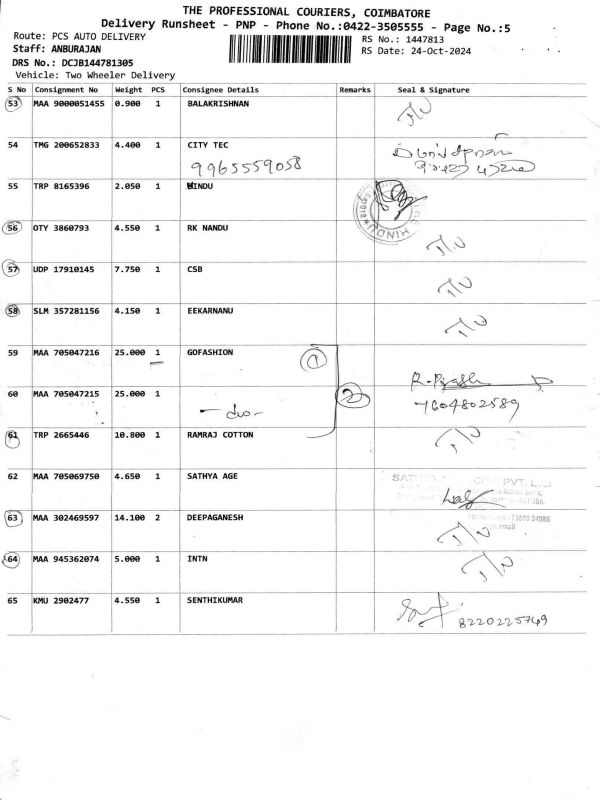 THE PROFESSIONAL COURIERS, COIMBATORE
Delivery Runsheet - PNP - Phone No.:0422-3505555 - Page No.:5
Route: PCS AUTO DELIVERY RS No.: 1447813
Staff: ANBURAJAN RS Date: 24-Oct-2024
DRS No.: DCJB144781305
Vehicle: Two Wheeler Delivery
S No Consignment No Weight PCS Consignee Details Remarks Seal & Signature
53 MAA 9000051455 0.900 1 BALAKRISHNAN
54 TMG 200652833 4.400 1 CITY TEC
9965559058
55 TRP 8165396 2.050 1 HINDU
56 OTY 3860793 4.550 1 RK NANDU
57 UDP 17910145 7.750 1 CSB
58 SLM 357281156 4.150 1 EEKARNANU
59 MAA 705047216 25.000 1 GOFASHION 1
60 MAA 705047215 25.000 1 2
- do - 7604802589
61 TRP 2665446 10.800 1 RAMRAJ COTTON
62 MAA 705069750 4.650 1 SATHYA AGE
63 MAA 302469597 14.100 2 DEEPAGANESH
64 MAA 945362074 5.000 1 INTN
65 KMU 2902477 4.550 1 SENTHIKUMAR
8220225749